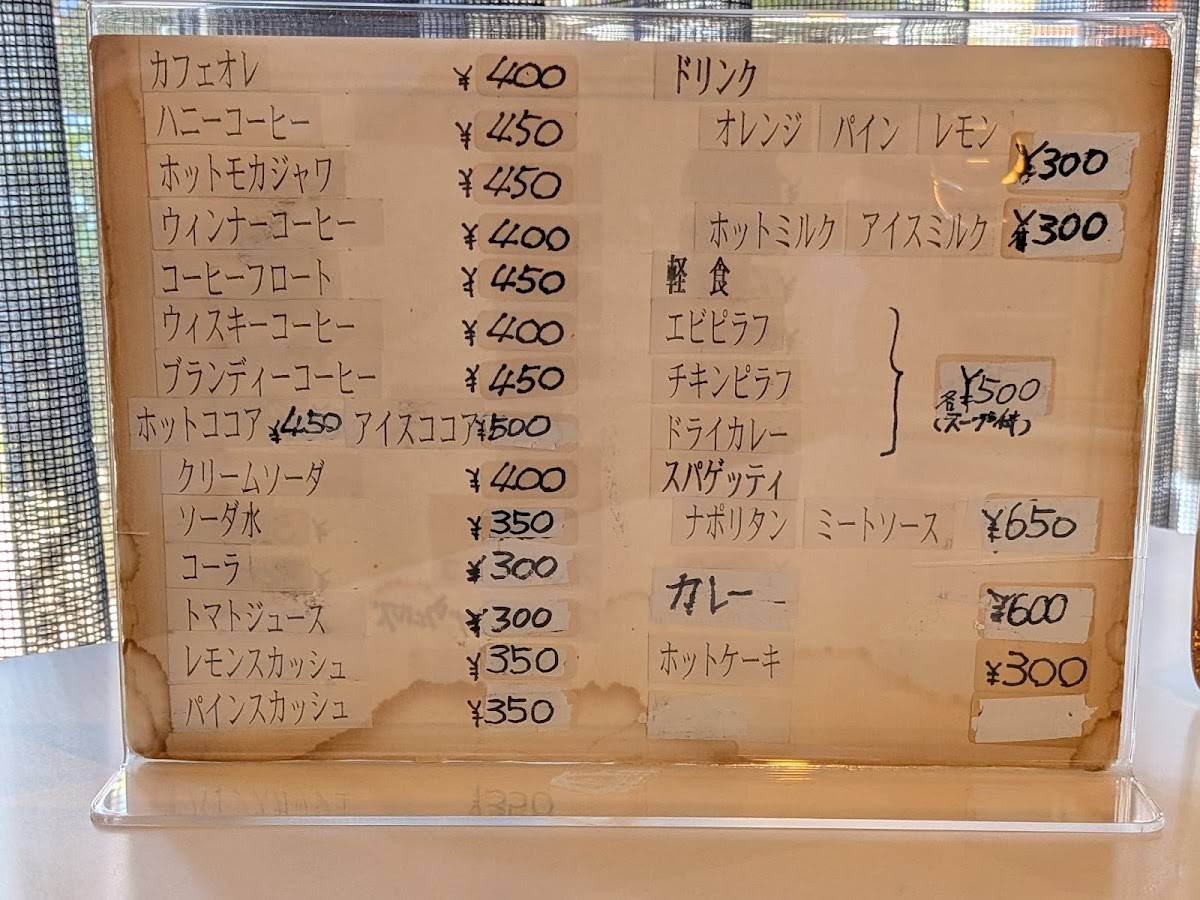 カフェオレ ¥400
ハニーコーヒー ¥450
ホットモカジャワ ¥450
ウィンナーコーヒー ¥400
コーヒーフロート ¥450
ウィスキーコーヒー ¥400
ブランディーコーヒー ¥450
ホットココア ¥450 アイスココア ¥500
クリームソーダ ¥400
ソーダ水 ¥350
コーラ ¥300
トマトジュース ¥300
レモンスカッシュ ¥350
パインスカッシュ ¥350
ドリンク
オレンジ パイン レモン ¥300
ホットミルク アイスミルク ¥300
軽 食
エビピラフ
チキンピラフ
ドライカレー
各¥500
(スープ付)
スパゲッティ
ナポリタン ミートソース ¥650
カレー ¥600
ホットケーキ ¥300